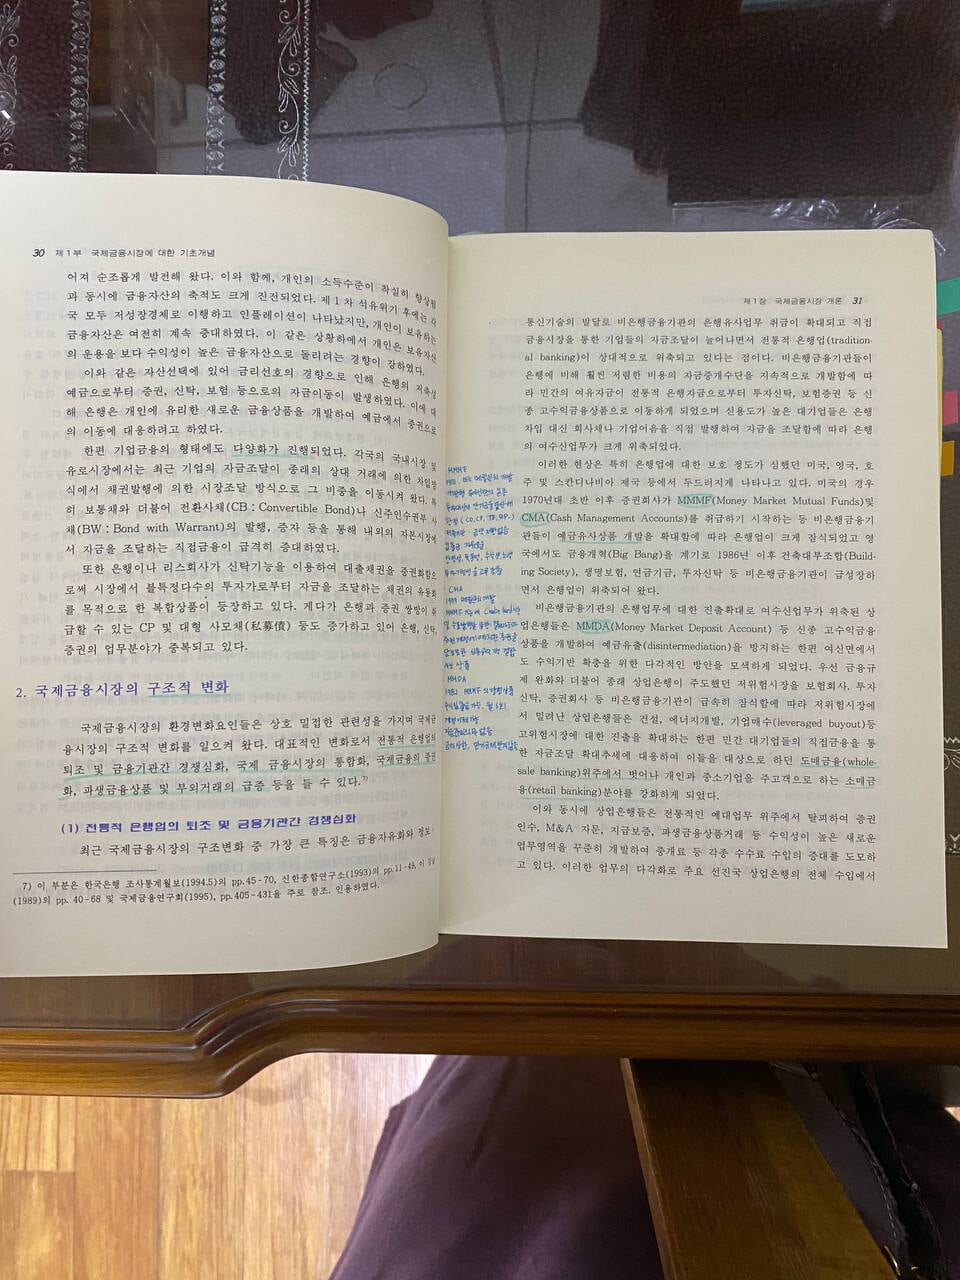 30 제1부 국제금융시장에 대한 기초개념
어져 순조롭게 발전해 왔다. 이와 함께, 개인의 소득수준이 착실히 향상됨
과 동시에 금융자산의 축적도 크게 진전되었다. 제1차 석유위기 후에는 각
국 모두 저성장경제로 이행하고 인플레이션이 나타났지만, 개인이 보유하는
금융자산은 여전히 계속 증대하였다. 이 같은 상황하에서 개인은 보유자산
의 운용을 보다 수익성이 높은 금융자산으로 돌리려는 경향이 강하였다.
이와 같은 자산선택에 있어 금리선호의 경향으로 인해 은행의 저축성
예금으로부터 증권, 신탁, 보험 등으로의 자금이동이 발생하였다. 이에 대
해 은행은 개인에 유리한 새로운 금융상품을 개발하여 예금에서 증권으로
의 이동에 대응하려고 하였다.
한편 기업금융의 형태에도 다양화가 진행되었다. 각국의 국내시장 및
유로시장에서는 최근 기업의 자금조달이 종래의 상대 거래에 의한 차입방
식에서 채권발행에 의한 시장조달 방식으로 그 비중을 이동시켜 왔다. 특
히 보통채와 더불어 전환사채(CB : Convertible Bond)나 신주인수권부 사
채(BW : Bond with Warrant)의 발행, 증자 등을 통해 내외의 자본시장에
서 자금을 조달하는 직접금융이 급격히 증대하였다.
또한 은행이나 리스회사가 신탁기능을 이용하여 대출채권을 증권화함으
로써 시장에서 불특정다수의 투자가로부터 자금을 조달하는 채권의 유동화
를 목적으로 한 복합상품이 등장하고 있다. 게다가 은행과 증권 쌍방이 취
급할 수 있는 CP 및 대형 사모채(私募債) 등도 증가하고 있어 은행, 신탁,
증권의 업무분야가 중복되고 있다.
2. 국제금융시장의 구조적 변화
국제금융시장의 환경변화요인들은 상호 밀접한 관련성을 가지며 국제금
융시장의 구조적 변화를 일으켜 왔다. 대표적인 변화로서 전통적 은행업의
퇴조 및 금융기관간 경쟁심화, 국제 금융시장의 통합화, 국제금융의 증권
화, 파생금융상품 및 부외거래의 급증 등을 들 수 있다.7)
(1) 전통적 은행업의 퇴조 및 금융기관간 경쟁심화
최근 국제금융시장의 구조변화 중 가장 큰 특징은 금융자유화와 정보·
7) 이 부분은 한국은행 조사통계월보(1994.5)의 pp. 45-70, 신한종합연구소(1993)의 pp. 11-49, 이
(1989)의 pp. 40-68 및 국제금융연구회(1995), pp. 405-431을 주로 참조. 인용하였다.
제1장 국제금융시장 개론 31
통신기술의 발달로 비은행금융기관의 은행유사업무 취급이 확대되고 직접
금융시장을 통한 기업들의 자금조달이 늘어나면서 전통적 은행업(tradition-
al banking)이 상대적으로 위축되고 있다는 점이다. 비은행금융기관들이
은행에 비해 훨씬 저렴한 비용의 자금중개수단을 지속적으로 개발함에 따
라 민간의 여유자금이 전통적 은행자금으로부터 투자신탁, 보험증권 등 신
종 고수익금융상품으로 이동하게 되었으며 신용도가 높은 대기업들은 은행
차입 대신 회사채나 기업어음을 직접 발행하여 자금을 조달함에 따라 은행
의 여수신업무가 크게 위축되었다.
이러한 현상은 특히 은행업에 대한 보호 정도가 심했던 미국, 영국, 호
주 및 스칸디나비아 제국 등에서 두드러지게 나타나고 있다. 미국의 경우
1970년대 초반 이후 증권회사가 MMMF(Money Market Mutual Funds)및
CMA(Cash Management Accounts)를 취급하기 시작하는 등 비은행금융기
관들이 예금유사상품 개발을 확대함에 따라 은행업이 크게 잠식되었고 영
국에서도 금융개혁(Big Bang)을 계기로 1986년 이후 건축대부조합(Build-
ing Society), 생명보험, 연금기금, 투자신탁 등 비은행금융기관이 급성장하
면서 은행업이 위축되어 왔다.
비은행금융기관의 은행업무에 대한 진출확대로 여수신업무가 위축된 상
업은행들은 MMDA(Money Market Deposit Account) 등 신종 고수익금융
상품을 개발하여 예금유출(disintermediation)을 방지하는 한편 여신면에서
도 수익기반 확충을 위한 다각적인 방안을 모색하게 되었다. 우선 금융규
제 완화와 더불어 종래 상업은행이 주도했던 저위험시장을 보험회사. 투자
신탁, 증권회사 등 비은행금융기관이 급속히 잠식함에 따라 저위험시장에
서 밀려난 상업은행들은 건설, 에너지개발, 기업매수(leveraged buyout)등
고위험시장에 대한 진출을 확대하는 한편 민간 대기업들의 직접금융을 통
한 자금조달 확대추세에 대응하여 이들을 대상으로 하던 도매금융(whole-
sale banking)위주에서 벗어나 개인과 중소기업을 주고객으로 하는 소매금
융(retail banking)분야를 강화하게 되었다.
이와 동시에 상업은행들은 전통적인 예대업무 위주에서 탈피하여 증권
인수, M&A 자문, 지급보증, 파생금융상품거래 등 수익성이 높은 새로운
업무영역을 꾸준히 개발하여 중개료 등 각종 수수료 수입의 증대를 도모하
고 있다. 이러한 업무의 다각화로 주요 선진국 상업은행의 전체 수입에서
MMMF
CMA
MMDA